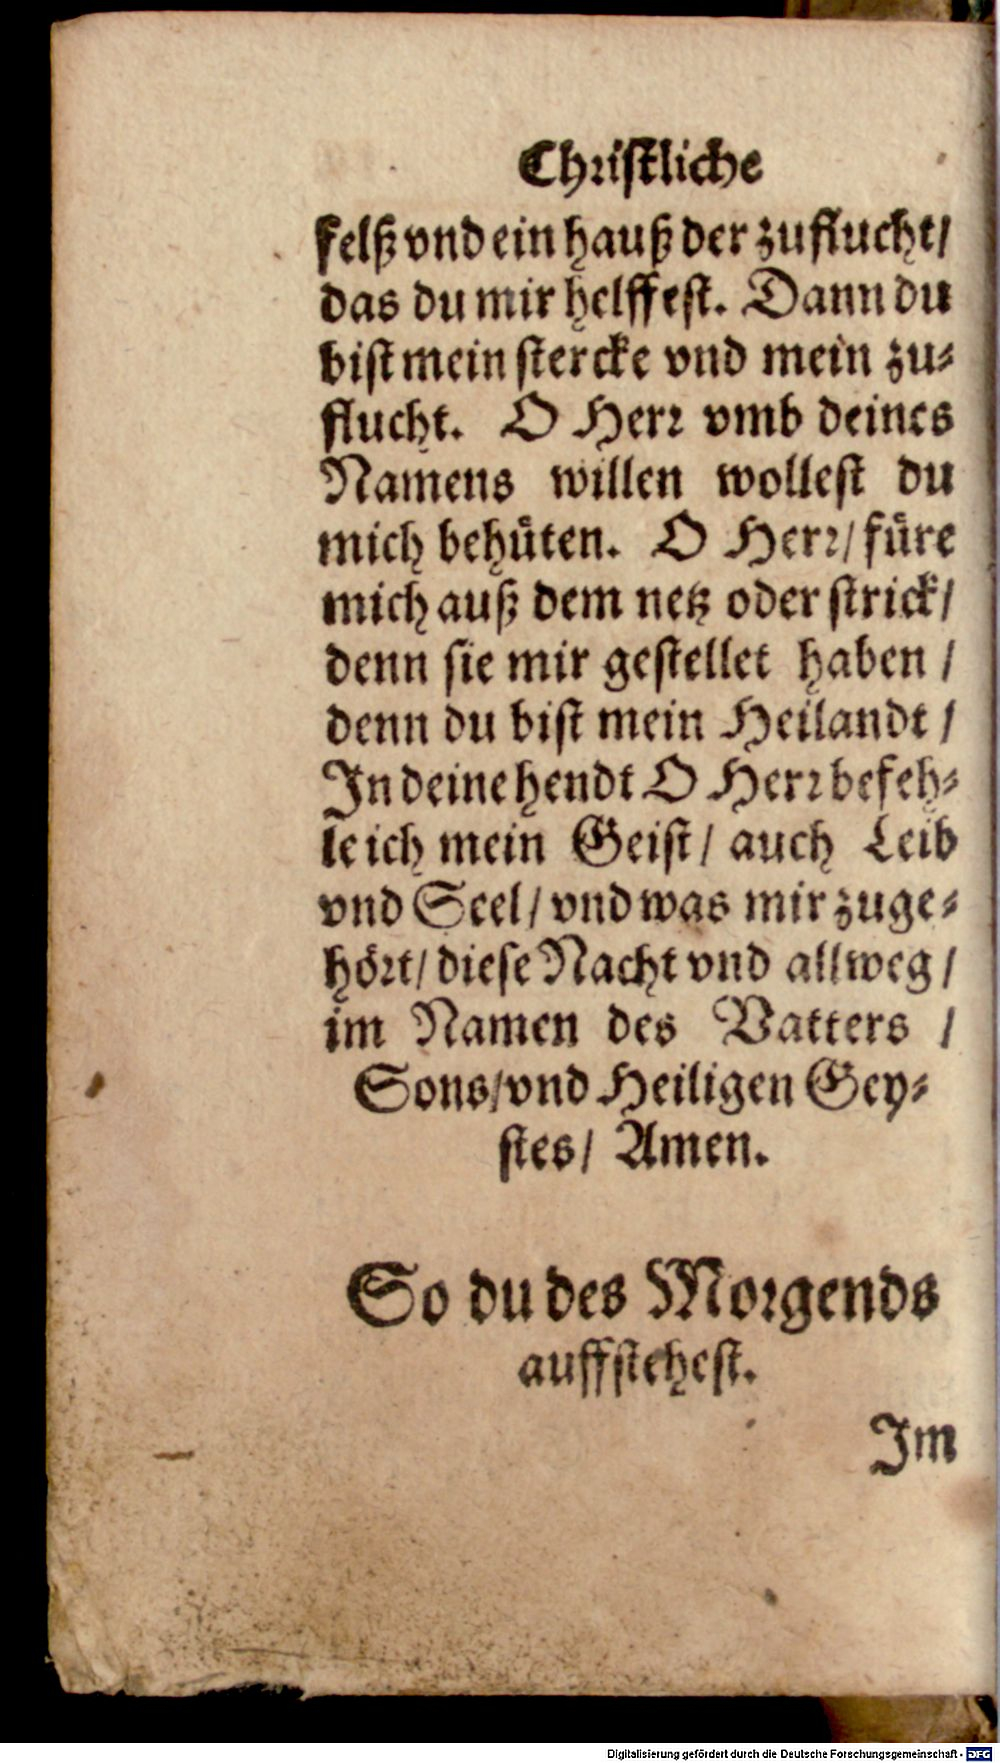 Christliche
felß vnd ein hauß der zuflucht/
das du mir helffest. Dann du
bist mein stercke vnd mein zu-
flucht. O Herr vmb deines
Namens willen wollest du
mich behüten. O Herr/ füre
mich auß dem netz oder strick/
denn sie mir gestellet haben /
denn du bist mein Heilandt /
In deine hendt O Herr befeh-
le ich mein Geist/ auch Leib
vnd Seel/ vnd was mir zuge-
hört/ diese Nacht vnd allweg/
im Namen des Vatters /
Sons/ vnd Heiligen Gey-
stes/ Amen.
So du des Morgends
auffstehest.
Im
Digitalisierung gefördert durch die Deutsche Forschungsgemeinschaft - DFG